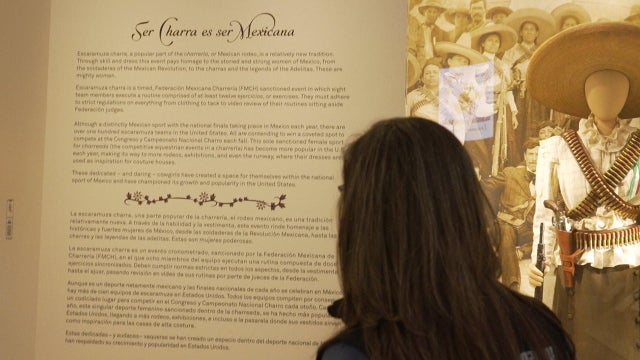 Ser Charra es ser Mexicana
Escaramuza charra, a popular part of the charrería, or Mexican rodeo, is a relatively new tradition.
Through skill and dress this event pays homage to the storied and strong women of Mexico, from
the soldaderas of the Mexican Revolution, to the charras and the legends of the Adelitas. These are
mighty women.
Escaramuza charra is a timed, Federación Mexicana Charrería (FMCH) sanctioned event in which eight
team members execute a routine comprised of at least twelve ejercicios, or exercises. They must adhere
to strict regulations on everything from clothing to tack to video review of their routines sitting aside
Federación judges.
Although a distinctly Mexican sport with the national finals taking place in Mexico each year, there are
over one hundred escaramuza teams in the United States. All are contending to win a coveted spot to
compete at the Congreso y Campeonato Nacional Charro each fall. This sole sanctioned female sport
for charreada (the competitive equestrian events in a charrería) has become more popular in the U.S.
each year, making its way to more rodeos, exhibitions, and even the runway, where their dresses are
used as inspiration for couture houses.
These dedicated – and daring – cowgirls have created a space for themselves within the national
sport of Mexico and have championed its growth and popularity in the United States.
La escaramuza charra, una parte popular de la charrería, el rodeo mexicano, es una tradición
relativamente nueva. A través de la habilidad y la vestimenta, este evento rinde homenaje a las
históricas y fuertes mujeres de México, desde las soldaderas de la Revolución Mexicana, hasta las
charras y las leyendas de las adelitas. Estas son mujeres poderosas.
La escaramuza charra es un evento cronometrado, sancionado por la Federación Mexicana de
Charrería (FMCH), en el que ocho miembros del equipo ejecutan una rutina compuesta de doce
ejercicios sincronizados. Deben cumplir normas estrictas en todos los aspectos, desde la vestimenta
hasta el ajuar, pasando revisión en video de sus rutinas por parte de jueces de la Federación.
Aunque es un deporte netamente mexicano y las finales nacionales de cada año se celebran en México,
hay más de cien equipos de escaramuza en Estados Unidos. Todos los equipos compiten por conseguir
un codiciado lugar para competir en el Congreso y Campeonato Nacional Charro cada otoño. Cada
año, este singular deporte femenino sancionado dentro de la charreada, se ha hecho más popular
Estados Unidos, llegando a más rodeos, exhibiciones, e incluso a la pasarela donde sus vestidos sirven
como inspiración para las casas de alta costura.
Estas dedicadas – y audaces – vaqueras se han creado un espacio dentro del deporte nacional de
han respaldado su crecimiento y popularidad en Estados Unidos.